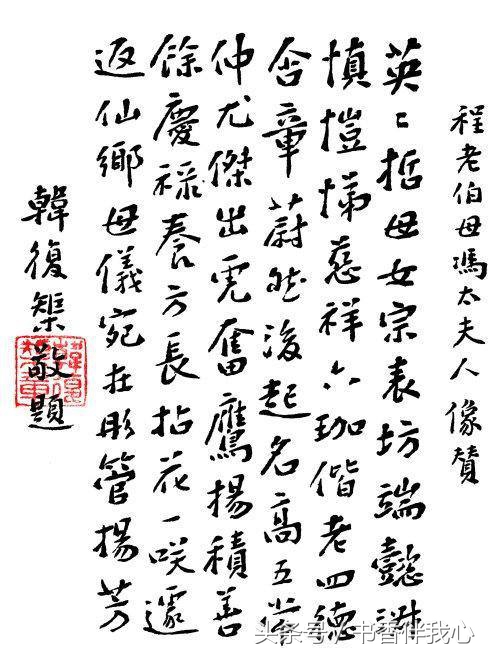 程老伯母馮太夫人像贊
英〻哲母女宗表坊端懿淑
慎愷悌慈祥六珈偕老四德
含章蔚然後起名高五常
仲尤傑出虎奮鷹揚積善
餘慶祿養方長拈花一咲遽
返仙鄉母儀宛在彤管揚芳
韓復榘敬題
头条号/书香伴我心